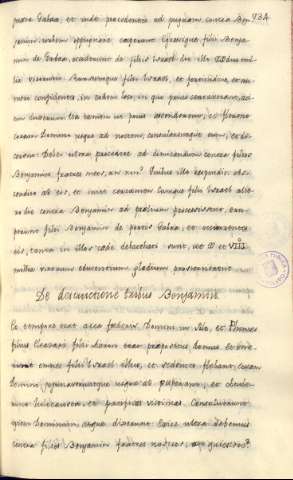 934
juxta Gabaa, et inde procedentes ad pugnam contra Ben-
jamin urbem oppugnare ceperunt. Egressique filii Benja-
min de Gabaa, occiderunt de filiis Israel die illo XXII milia
virorum. Rursumque filii Israel, et fortitudine, et nu-
mero confidentes, in eodem loco, in quo prius certaverant, aci-
em direxerunt. Ita tamen ut prius ascenderent, et flerent
coram Domino usque ad noctem, consulerentque eum, et di-
cerent: Debeo ultra procedere ad dimicandum contra filios
Benjamin, fratres meos, an non? Quibus ille respondit: As-
cendite ad eis, et inite certamen. Cumque filii Israel alte-
ro die contra Benjamin ad praelium processissent, eru-
perunt filii Benjamin de portis Gabaa, et occurrentes
eis, tanta in illos caede debachati sunt, ut X et VIII
milia virorum educentium gladium prosternerent.
De destructione tribus Benjamin
Eo tempore erat arca foederis Domini in Silo, et Phinees
filius Eleazari filii Aaron erat praepositus domus. Et vene-
runt omnes filii Israel illuc, et sedentes flebant coram
Domino jejunaveruntque usque ad vesperam, et obtule-
runt holocausta, et pacificas victimas. Consuluerunt
quem Dominum atque dixerunt: Exire ultra debemus
contra filios Benjamin fratres nostros, an quiescere?